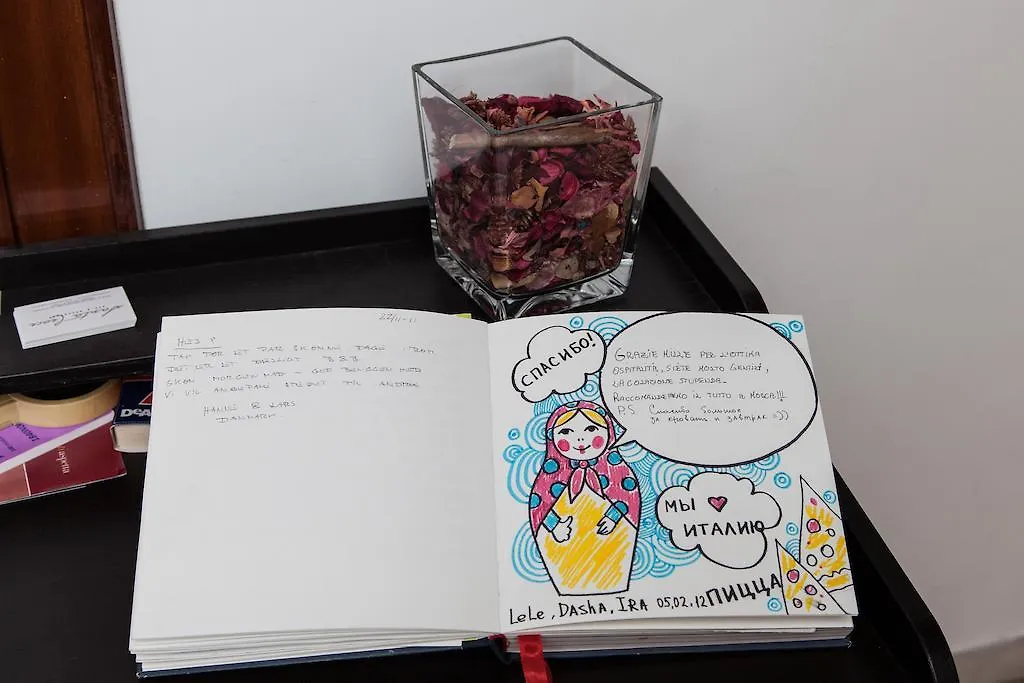 22/11-11
HEJ!
TAK FOR ET PAR SKØNNE DAGE I ROM
DET ER ET DEJLIGT B&B
SKØN MORGENMAD - GOD BELIGGENHED
VI VIL ANBEFALE STEDET TIL ANDRE
HANNE & LARS
DANMARK
СПАСИБО!
GRAZIE MILLE PER L'OTTIMA
OSPITALITÀ, SIETE MOLTO GENTILI,
LA COLAZIONE STUPENDA.
RACCOMANDEREMO IL TUTTO A MOSCA!!
P.S Спасибо большое
за кровать и завтрак =))
МЫ ❤
ИТАЛИЮ
ПИЦЦА
LeLe, DAShA, IRA 05.02.12